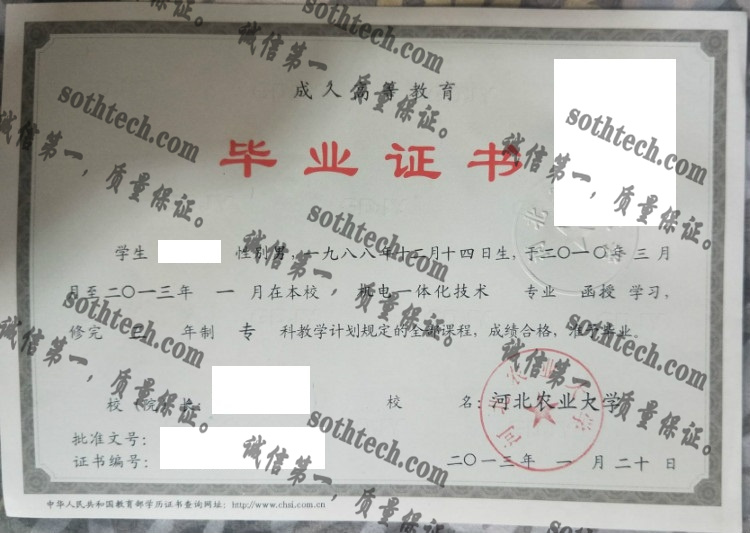 成人高等教育
毕业证书
学生 性别男，一九八八年十二月十四日生，于二〇一〇年三月
月至二〇一三年 一 月在本校 机电一体化技术 专业 函授 学习，
修完 三 年制 专 科教学计划规定的全部课程，成绩合格，准予毕业。
校（院）长： 校 名：河北农业大学
批准文号：
证书编号： 二〇一三年 一 月二十日
中华人民共和国教育部学历证书查询网址：http://www.chsi.com.cn
河北农业大学
sothtech.com
诚信第一，质量保证。
sothtech.com
诚信第一，质量保证。
sothtech.com
诚信第一，质量保证。
sothtech.com
诚信第一，质量保证。
sothtech.com
诚信第一，质量保证。
sothtech.com
诚信第一，质量保证。
sothtech.com
诚信第一，质量保证。